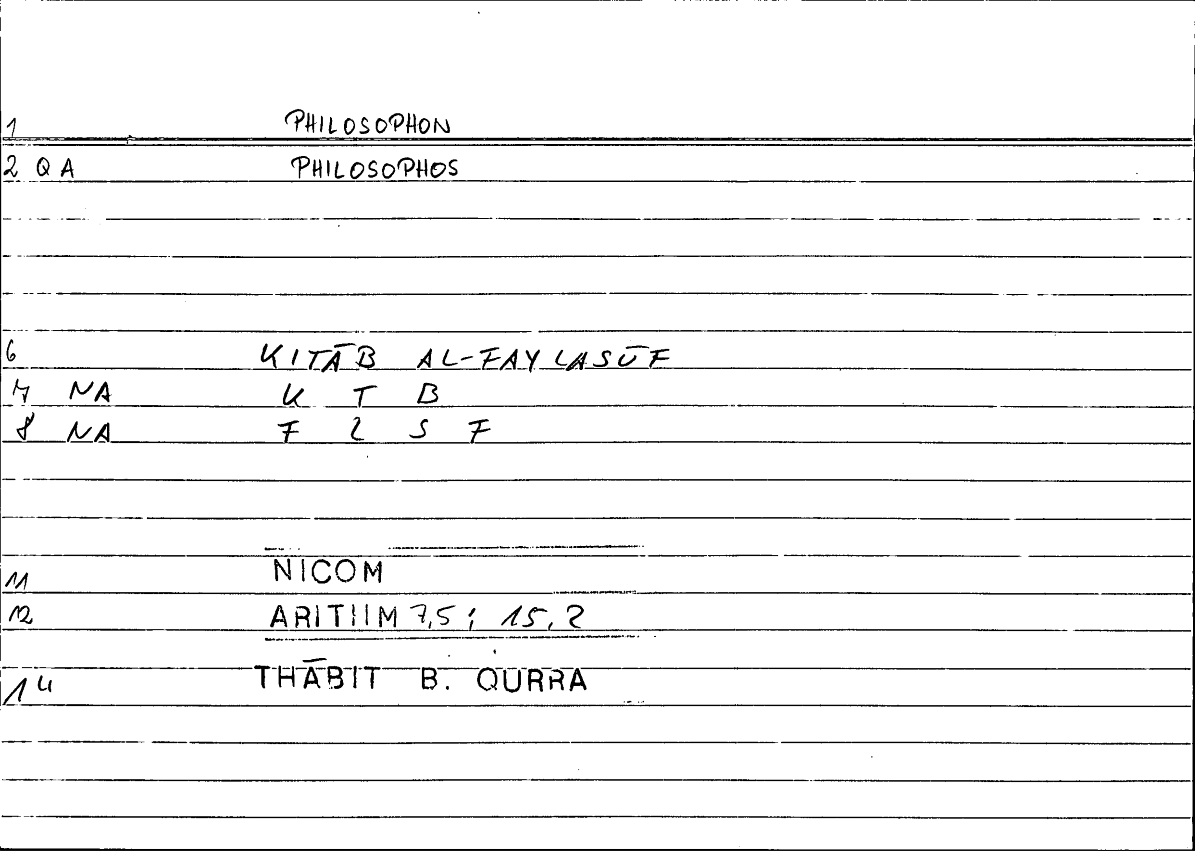 1 PHILOSOPHON
2 Q A PHILOSOPHOS
6 KITĀB AL-FAYLASŪF
7 NA K T B
8 NA F L S F
11 NICOM
12 ARITHM 7,5; 15,2
14 THĀBIT B. QURRA